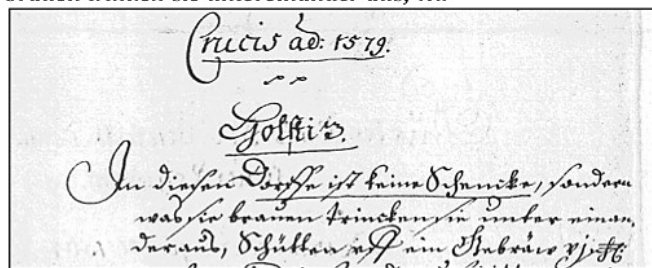 Crucis ad: 1579.
Golstiz.
In diesen Dorffe ist keine Schencke, sondern
was sie brauen trincken sie unter einan,
der aus, Schütten uff ein Gebräw vj.